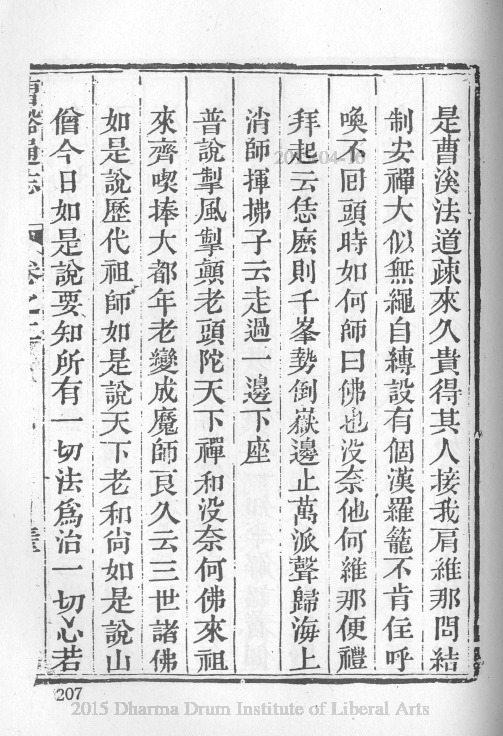 是曹溪法道疎來久貴得其人接我肩維那問結
制安禪大似無繩自縛設有個漢羅籠不肯住呼
喚不囘頭時如何師曰佛也没奈他何維那便禮
拜起云恁麽則千峯勢倒嶽邊止萬派聲歸海上
消師揮拂子云走過一邊下座
普說掣風掣顛老頭陀天下禪和没奈何佛來祖
來齊喫捧大都年老變成魔師良久云三世諸佛
如是說歷代祖師如是說天下老和尚如是說山
僧今日如是說要知所有一切法爲治一切心若
曹谿通志 卷之
207
2015 Dharma Drum Institute of Liberal Arts